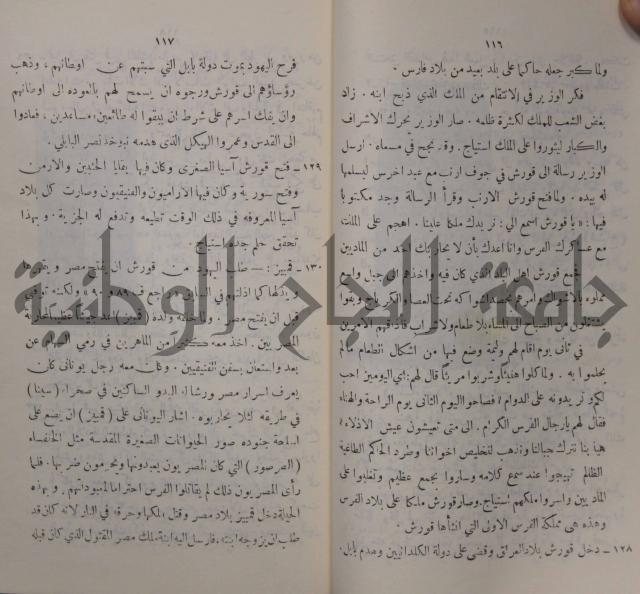 ١١٦
ولما كبر جعله حاكما على بلد بعيد من بلاد فارس .
فكر الوزير في الانتقام من الملك الذي ذبح ابنه . زاد
بغض الشعب للملك لكثرة ظلمه . صار الوزير يحرك الاشراف
والكبار ليثوروا على الملك استياج . وقد نجح في مسعاه . ارسل
الوزير رسالة الى قورش في جوف ارنب مع عبد اخرس ليسلمها
له بيده . ولما فتح قورش الارنب وقرأ الرسالة وجد مكتوبا
فيها : « يا قورش اسمع الي : نريدك ملكا علينا . اهجم على الملك
مع عساكرك الفرس وانا اعدك بأن لا يحاربك احد من الماديين
جمع قورش اهل البلد الذي كان فيه واخذهم الى جبل واسع
من الصباح الى المساء بلا طعام ولا شراب فأذاقهم الأمرين
في ثاني يوم اقام لهم وليمة وضع فيها من اشكال الطعام ما لم
يحلموا به . ولما كلوا هنيئا وشربوا مريئا قال لهم : اي اليومين احب
لكم وتريدونه على الدوام ؟ فصاحوا اليوم الثاني يوم الراحة والهناء
فقال لهم يا رجال الفرس الكرام . الى متى تعيشون عيش الاذلاء ؟
هيا بنا نترك جبالنا ونذهب لتخليص اخواننا وطرد الحاكم الطاغية
الظالم تهيجوا عند سمع كلامه وساروا بجمع عظيم وتغلبوا على
الماديين واسروا ملكهم استياج . وصار قورش ملكا على بلاد الفرس
وهذه هي مملكة الفرس الاولى التي انشأها قورش .
١٢٨ ـ دخل قورش بلاد العراق وقضى على دولة الكلدانيين وهدم بابل .
١١٧
فرح اليهود بموت دولة بابل التي سبتهم عن اوطانهم ، وذهب
رؤساؤهم الى قورش ورجوه ان يسمح لهم بالعوده الى اوطانهم
وان يفك اسرهم على شرط ان يبقوا له طائعين ، مساعدين ، فعادوا
الى القدس وعمروا الهيكل الذي هدمه نبوخذ نصر البابلي .
١٢٩ ـ فتح قورش آسيا الصغرى وكان فيها بقايا الحثيين والارمن
وفتح سورية وكان فيها الآراميون والفنيقيون وصارت كل بلاد
آسيا المعروفه في ذلك الوقت تطيعه وتدفع له الجزية . وبهذا
تحقق حلم جده استياج .
١٣٠ ـ قمبيز : — طلب اليهود من قورش ان يفتح مصر
قبل ان يفتح مصر .
المصريين . اخذ معه كثيرا من الماهرين في رمي السهام عن
بعد واستعان بسفن الفنيقيين . وكان معه رجل يوناني كان
يعرف اسرار مصر ورشا له البدو الساكنين في صحراء ( سينا )
في طريقه لئلا يحاربوه . اشار اليوناني على ( قمبيز ) ان يضع على
اسلحة جنوده صور الحيوانات الصغيرة المقدسة مثل الخنفساء
( الصرصور ) التي كان المصريون يعبدونها ويحرمون ضربها . فلما
رأى المصريون ذلك لم يقاتلوا الفرس احتراما لمعبوداتهم . وبهذه
الحيلة دخل قمبيز بلاد مصر وقتل ملكها وحرقه في النار لانه كان قد
طلب ان يزوجه ابنته ، فارسل اليه ابنة ملك مصر المقتول الذي كان قبله
جامعة النجاح الوطنية